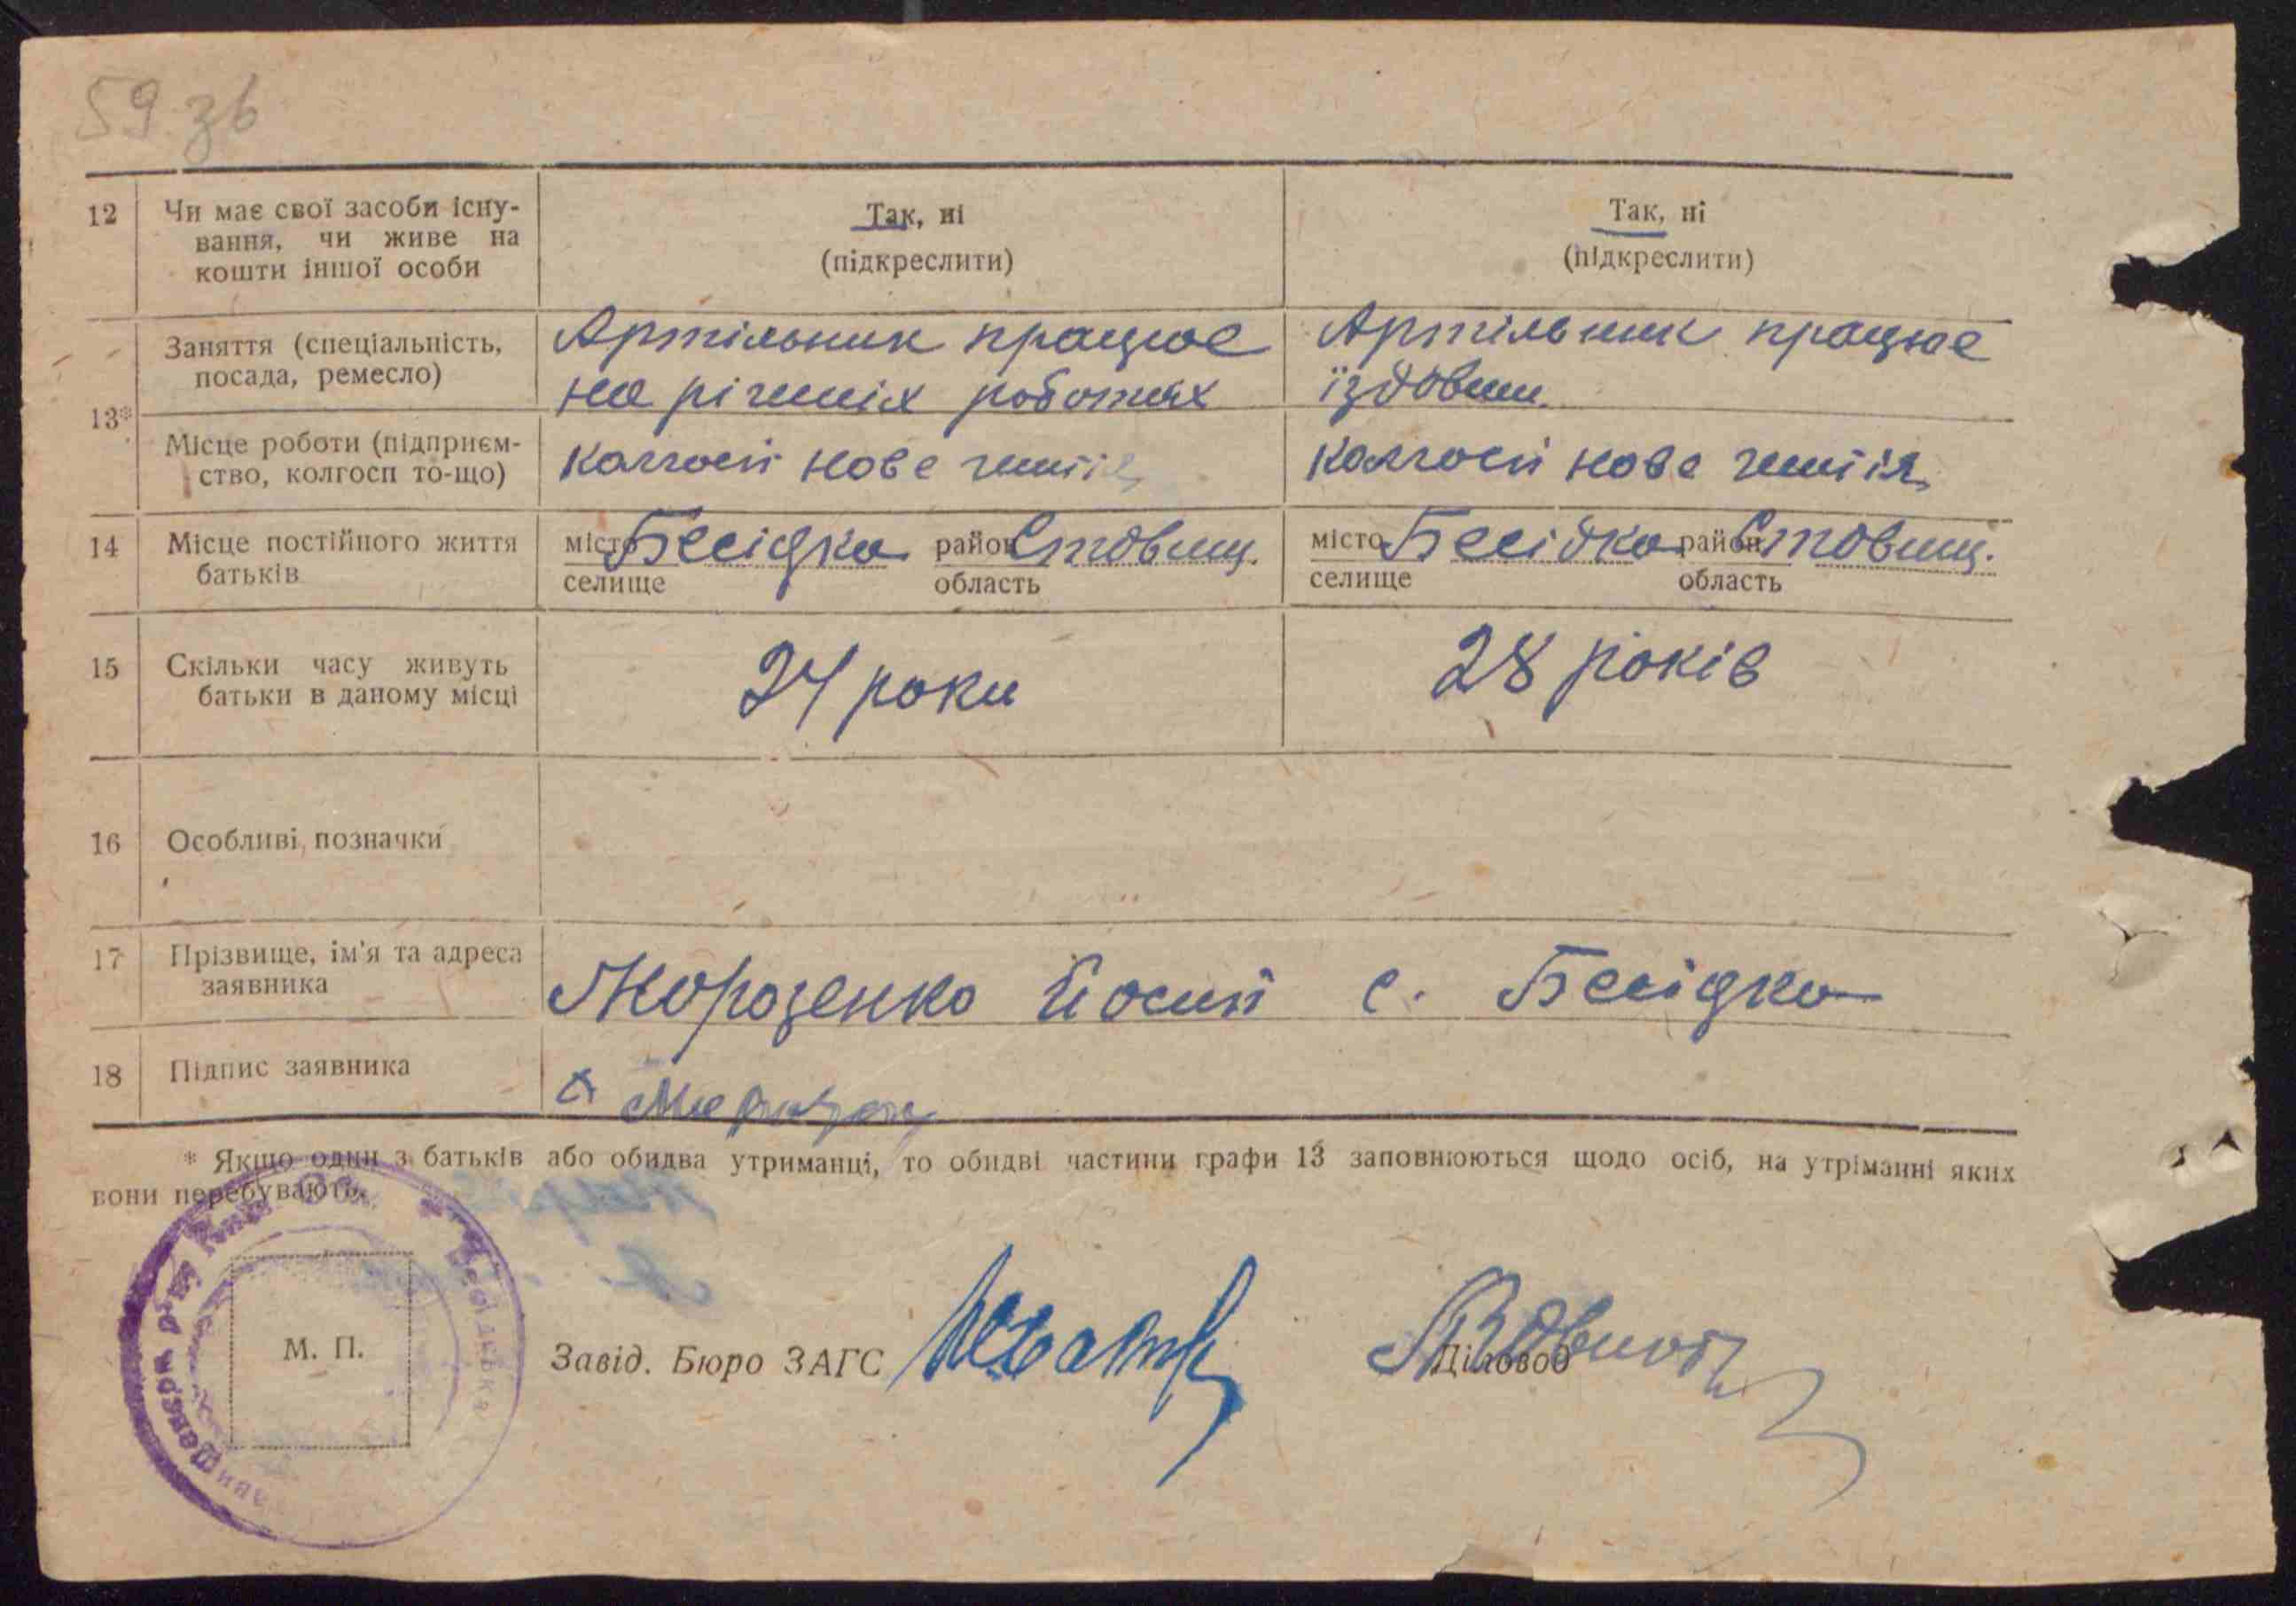 59 зв
12 Чи має свої засоби існу- Так, ні Так, ні
вання, чи живе на
кошти іншої особи (підкреслити) (підкреслити)
Заняття (спеціальність, Артільник працює Артільник працює
посада, ремесло) на різних роботах їздовим
13*
Місце роботи (підприєм- колгосп нове життя колгосп нове життя
ство, колгосп то-що)
14 Місце постійного життя місто Бесідка район Ставищ. місто Бесідка район Ставищ.
батьків селище область селище область
15 Скільки часу живуть 24 роки 28 років
батьки в даному місці
16 Особливі позначки
17 Прізвище, ім'я та адреса Мороженко Йосип с. Бесідка
заявника
18 Підпис заявника
* Якщо один з батьків або обидва утриманці, то обидві частини графи 13 заповнюються щодо осіб, на утріманні яких
вони перебувають.
М. П.
Завід. Бюро ЗАГС Діловод